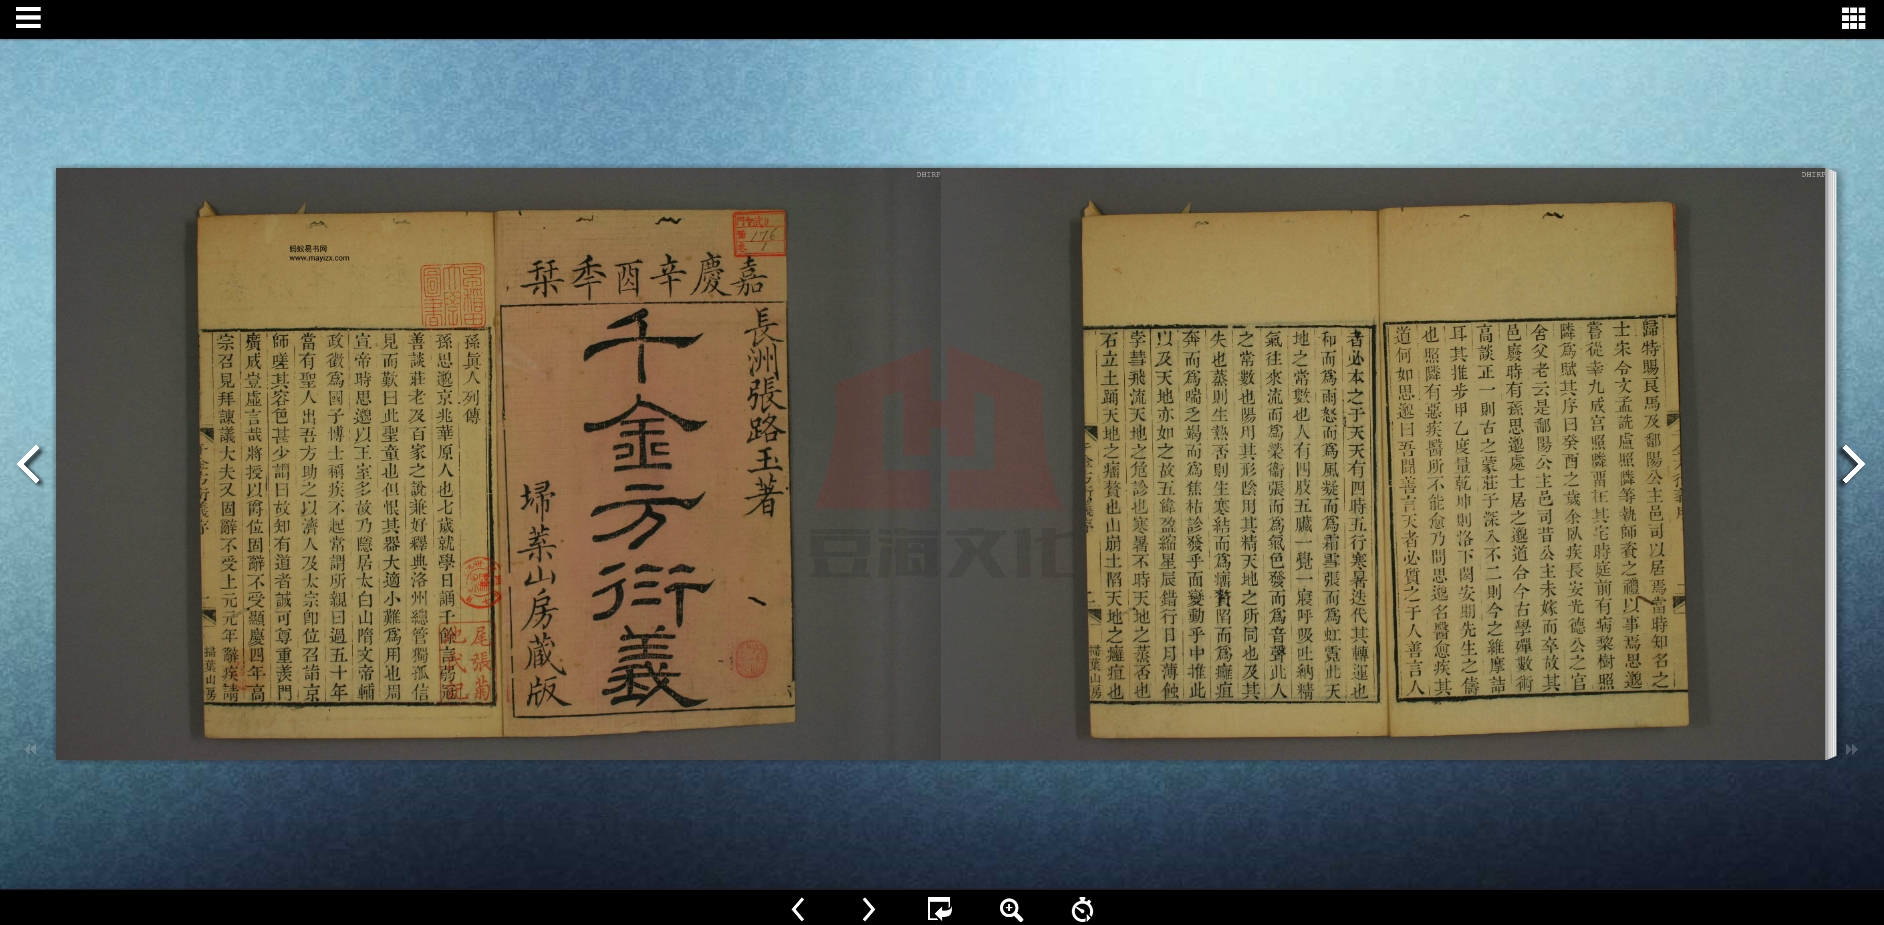 嘉慶辛酉季栞
長洲張路玉著
千金方衍義
埽葉山房藏版
176
1
蚂蚁易书网
www.mayizx.com
孫眞人列傳
孫思邈京兆華原人也七歲就學日誦千餘言弱冠
善談莊老及百家之說兼好釋典洛州總管獨孤信
見而歎曰此聖童也但恨其器大適小難爲用也周
宣帝時思邈以王室多故乃隱居太白山隋文帝輔
政徵爲國子博士稱疾不起常謂所親曰過五十年
當有聖人出吾方助之以濟人及太宗卽位召詣京
師嗟其容色甚少謂曰故知有道者誠可尊重羨門
廣成豈虛言哉將授以爵位固辭不受顯慶四年高
宗召見拜諫議大夫又固辭不受上元元年辭疾請
千金方衍義序
掃葉山房
歸特賜良馬及鄱陽公主邑司以居焉當時知名之
士朱令文孟詵盧照隣等執師資之禮以事焉思邈
嘗從幸九成宮照隣畱在其宅時庭前有病黎樹照
隣爲賦其序曰癸酉之歲余臥疾長安光德公之官
舍父老云是鄱陽公主邑司昔公主未嫁而卒故其
邑廢時有孫思邈處士居之邈道合今古學殫數術
高談正一則古之蒙莊子深入不二則今之維摩詰
耳其推步甲乙度量乾坤則洛下閎安期先生之儔
也照隣有惡疾醫所不能愈乃問思邈名醫愈疾其
道何如思邈曰吾聞善言天者必質之于人善言人
者必本之于天天有四時五行寒暑迭代其轉運也
和而爲雨怒而爲風凝而爲霜雪張而爲虹霓此天
地之常數也人有四肢五臟一覺一寢呼吸吐納精
氣往來流而爲榮衞張而爲氣色發而爲音聲此人
之常數也陽用其形陰用其精天地之所同也及其
失也蒸則生熱否則生寒結而爲瘤贅陷而爲癰疽
奔而爲喘乏竭而爲焦枯診發乎面變動乎中推此
以及天地亦如之故五緯盈縮星辰錯行日月薄蝕
孛彗飛流天地之危診也寒暑不時天地之蒸否也
石立土踊天地之瘤贅也山崩土陷天地之癰疽也
掃葉山房
豆海文化
DHIRP
DHIRP